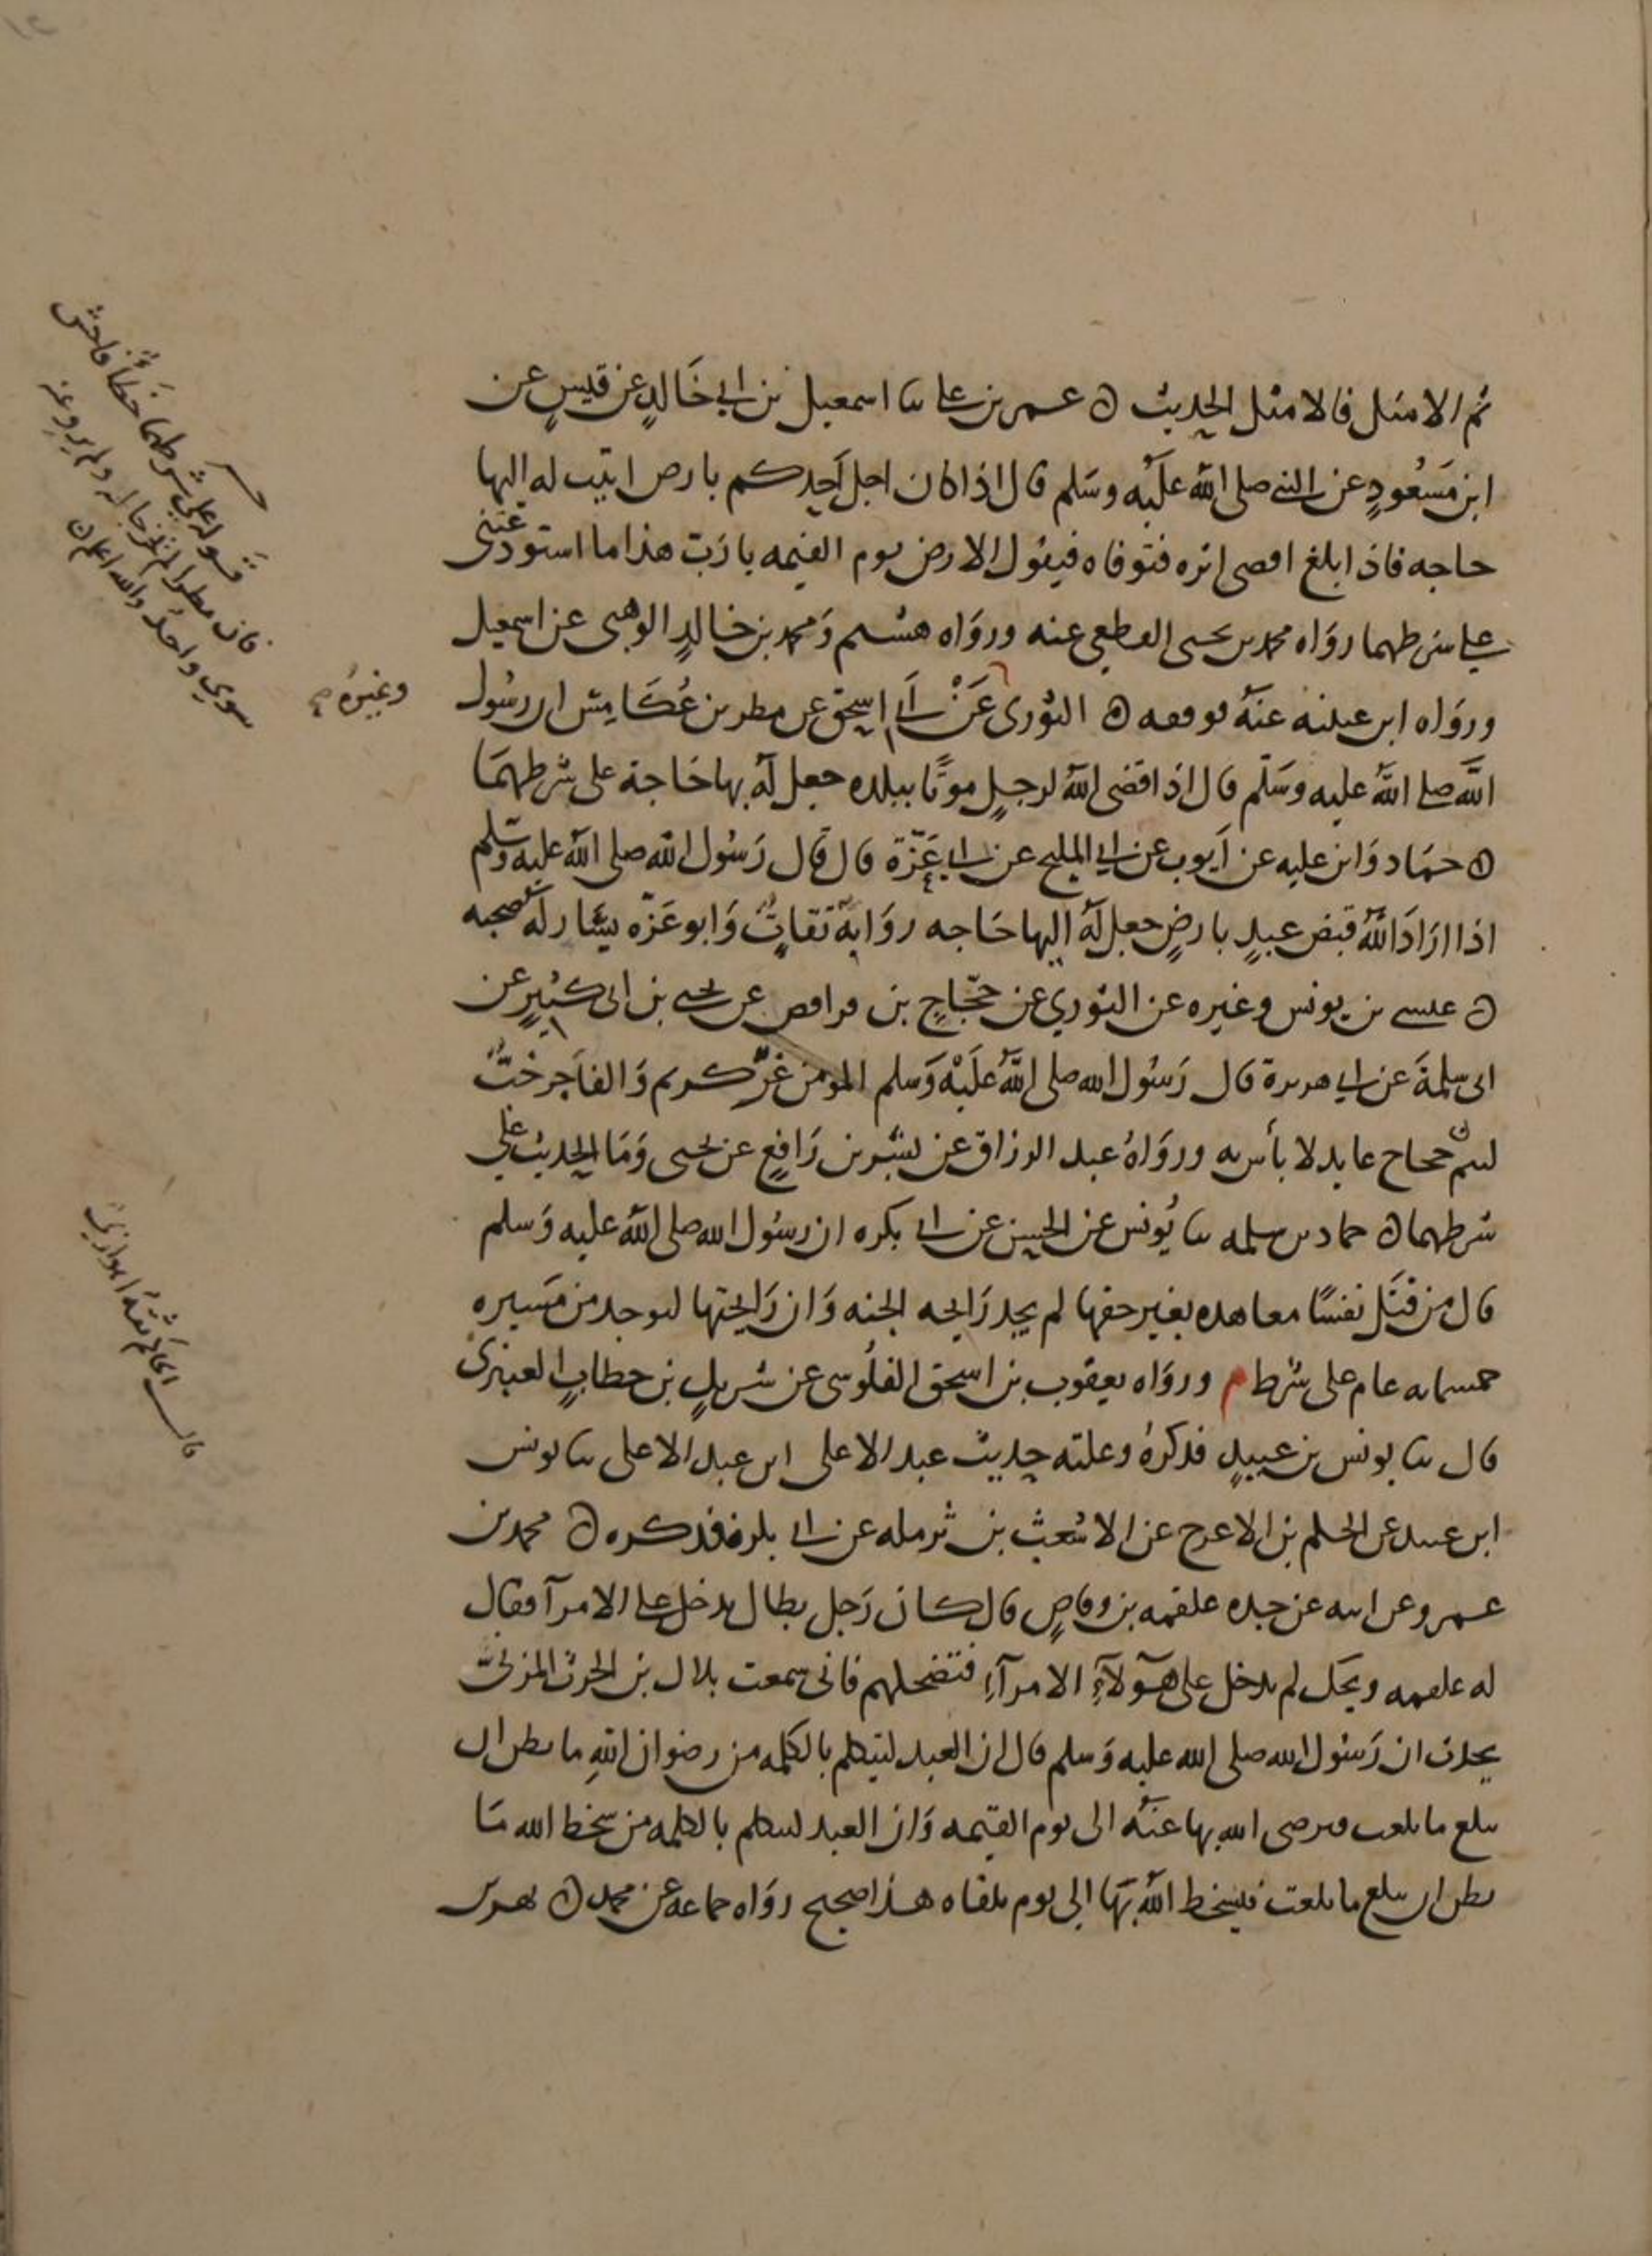 ثم الامثل فالامثل الحديث ٥ عمر بن علي ثنا اسمعيل بن ابي خَالدٍ عن قيسٍ عن
ابن مَسْعُودٍ عن النبي صلى الله عَلَيْه وسَلم قال اذا كان اجل اَحدكم بارض اتيت له اليها
حاجه فاذا بلغ اقصى اثره فتوفاه فيقول الارض يوم القيمه يا رَبّ هذا ما استودعتني
على شرطهما روَاه محمد بن يحيى القطعي عنه وروَاه هشيم وَمحمد بن خَالدٍ الوهبي عن اسمعيل
وروَاه ابن عيينه عنهُ فوقفه ٥ الثوري عَنْ اَبي اسحق عن مطر بن عُكَامِس ان رسُول
اللَّه صلى اللَّه عليه وسَلّم قال اذا قضى اللهُ لرجلٍ موتًا ببلده جعل لَهُ بها حَاجة على شرطهمَا
وغيرهُ صح
٥ حمَاد وَابن عليه عن اَيوب عن ابي المليح عن ابي عَزّة قال قال رَسُول الله صلى الله عليه وسَلم
اذا ارَادَ اللهُ قبض عبدٍ بارضٍ جعل لَهُ اليها حَاجه روَاتهُ ثقاتٌ وَابو عَزّه يسَار له صحبه
٥ عيسى بن يونس وغيره عن الثوري عن حجّاجٍ بن فرافصه عن يحيى بن ابي كثيرٍ عن
ابي سلمةَ عن ابي هريرة قال رَسُول الله صلى اللَّه عَلَيْه وَسَلم المؤمن غرٌّ كريم وَالفاَجر خبٌّ
لئيمٌ حجاج عابد لا بأس به وروَاهُ عبد الرزاق عن بشر بن رَافعٍ عن يحيى وَمَا الحديث على
شرطهما ٥ حماد بن سلمه ثنا يُونس عن الحسن عن ابي بكره ان رسُول الله صلى الله عليه وَسلم
قال من قتَل نفسًا معاهده بغير حقها لم يجد رَايحه الجنه وَان رَايحتها لتوجد من مَسيره
خمسمايه عام على شرط م وروَاه يعقوب بن اسحق القلُوسي عن شريك بن خطابٍ العنبري
قال ثنا يونس بن عبيدٍ فذكرهُ وعلته حديث عبد الاعلى ابن عبد الاعلى ثنا يونس
ابن عبيد عن الحكم بن الاعرج عن الاشعث بن ثرمله عن ابي بكرة فذكره ٥ محمد بن
عمرو عن ابيه عن جده علقمه بن وقاصٍ قال كان رَجل بطال يدخل على الامرآ فقال
له علقمه ويحك لم تدخل على هوَلآءِ الامرآءِ فتضحكهم فاني سمعت بلال بن الحرث المزنيّ
يحدث ان رَسُول الله صلى الله عليه وَسلم قال ان العبد ليتكلم بالكلمه من رضوان اللهِ ما يظن ان
تبلغ ما بلغت فيرضى الله بها عنهُ الى يوم القيمه وَان العبد ليتكلم بالكلمه من سخط الله مَا
يظن ان تبلغ ما بلغت فيسخط اللهُ بَها الى يوم يلقاه هذا صحيح روَاه جماعه عن محمد ٥ بهز بن
قَوله على شرطهما خطأٌ فاحش
فان مطرا لم يخرجا له ولم يرو عنه
سوى واحدٌ والله اعلم
قال الحاكم ثقةٌ اهوازيٌّ